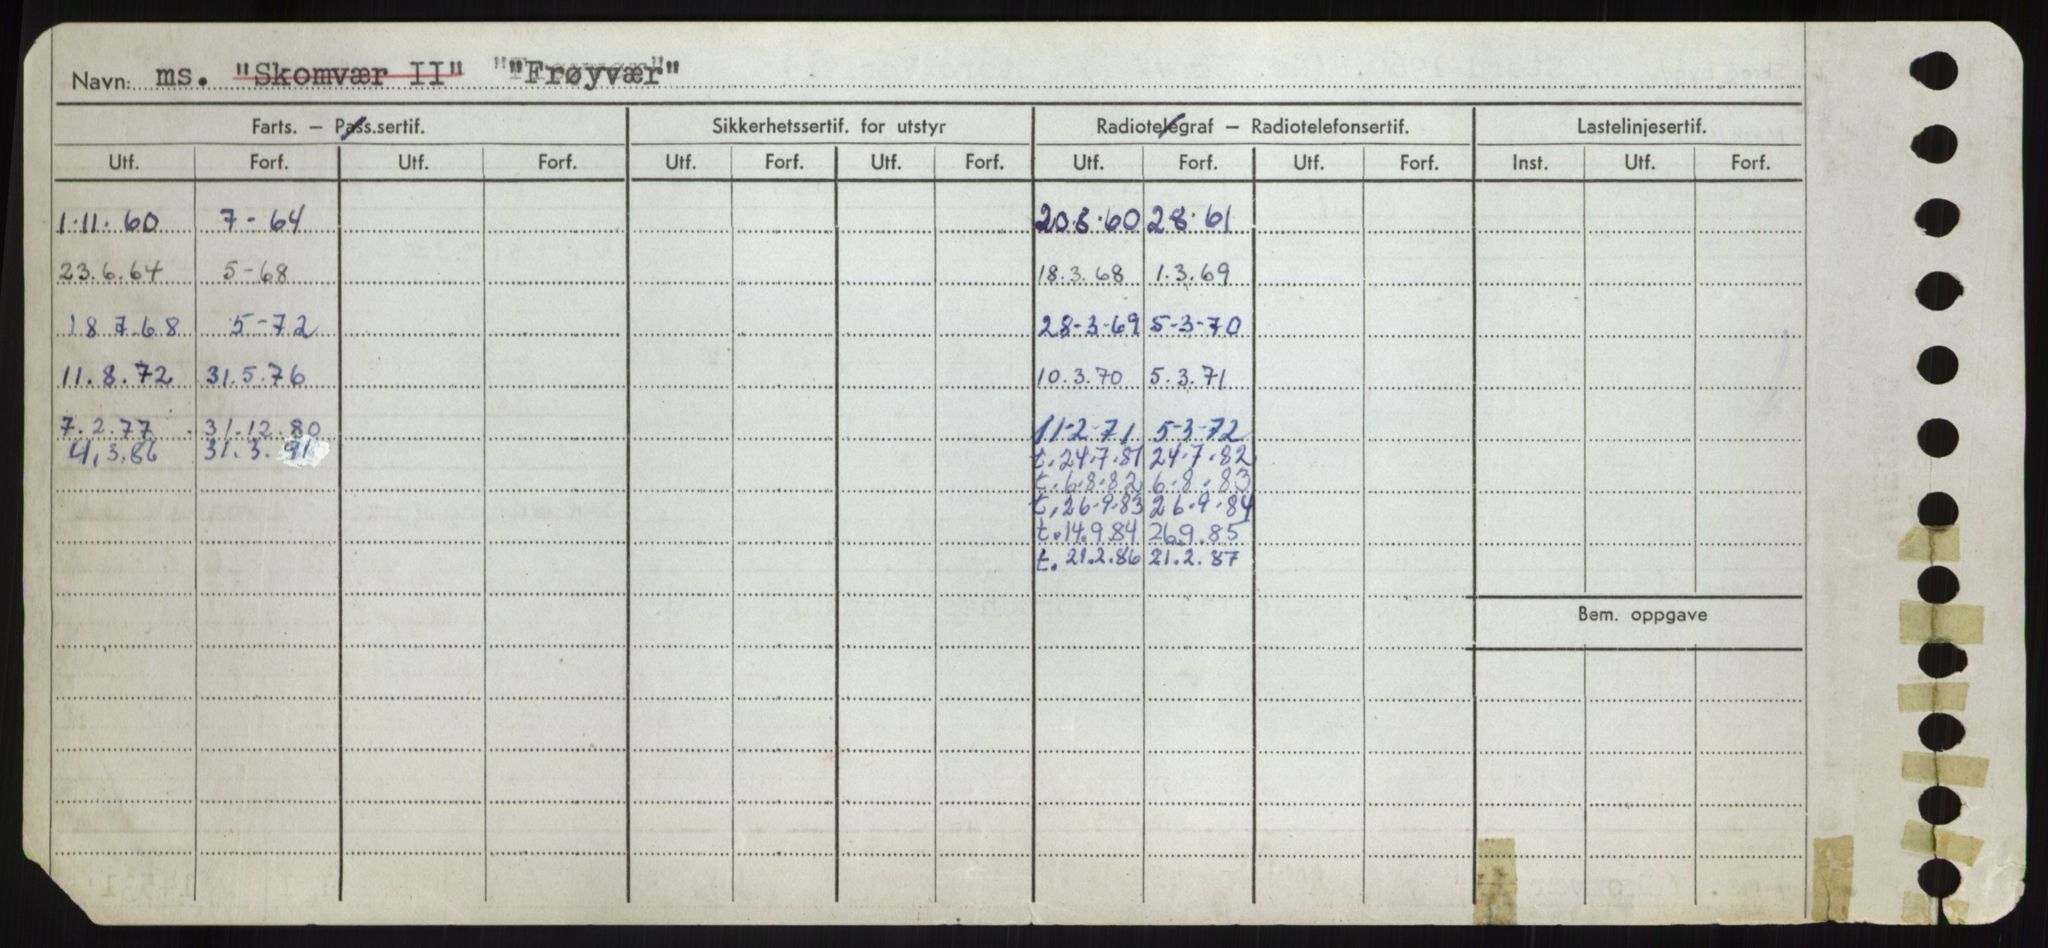 Navn: ms. "Skomvær II" "Frøyvær"
Farts. — Pass.sertif. Sikkerhetssertif. for utstyr Radiotelegraf — Radiotelefonsertif. Lastelinjesertif.
Utf. Forf. Utf. Forf. Utf. Forf. Utf. Forf. Utf. Forf. Utf. Forf. Inst. Utf. Forf.
1.11.60 7-64 20.8.60 28.61
23.6.64 5-68 18.3.68 1.3.69
18 7.68 5-72 28-3-69 5-3-70
11.8.72 31.5.76 10.3.70 5.3.71
7.2.77 31.12.80 11-2-71 5-3-72
4.3.86 31.3.91 t.24.7.81 24.7.82
t.6.8.82 6.8.83
t.26.9.83 26.9.84
t.14.9.84 26.9.85
t.21.2.86 21.2.87
Bem. oppgave